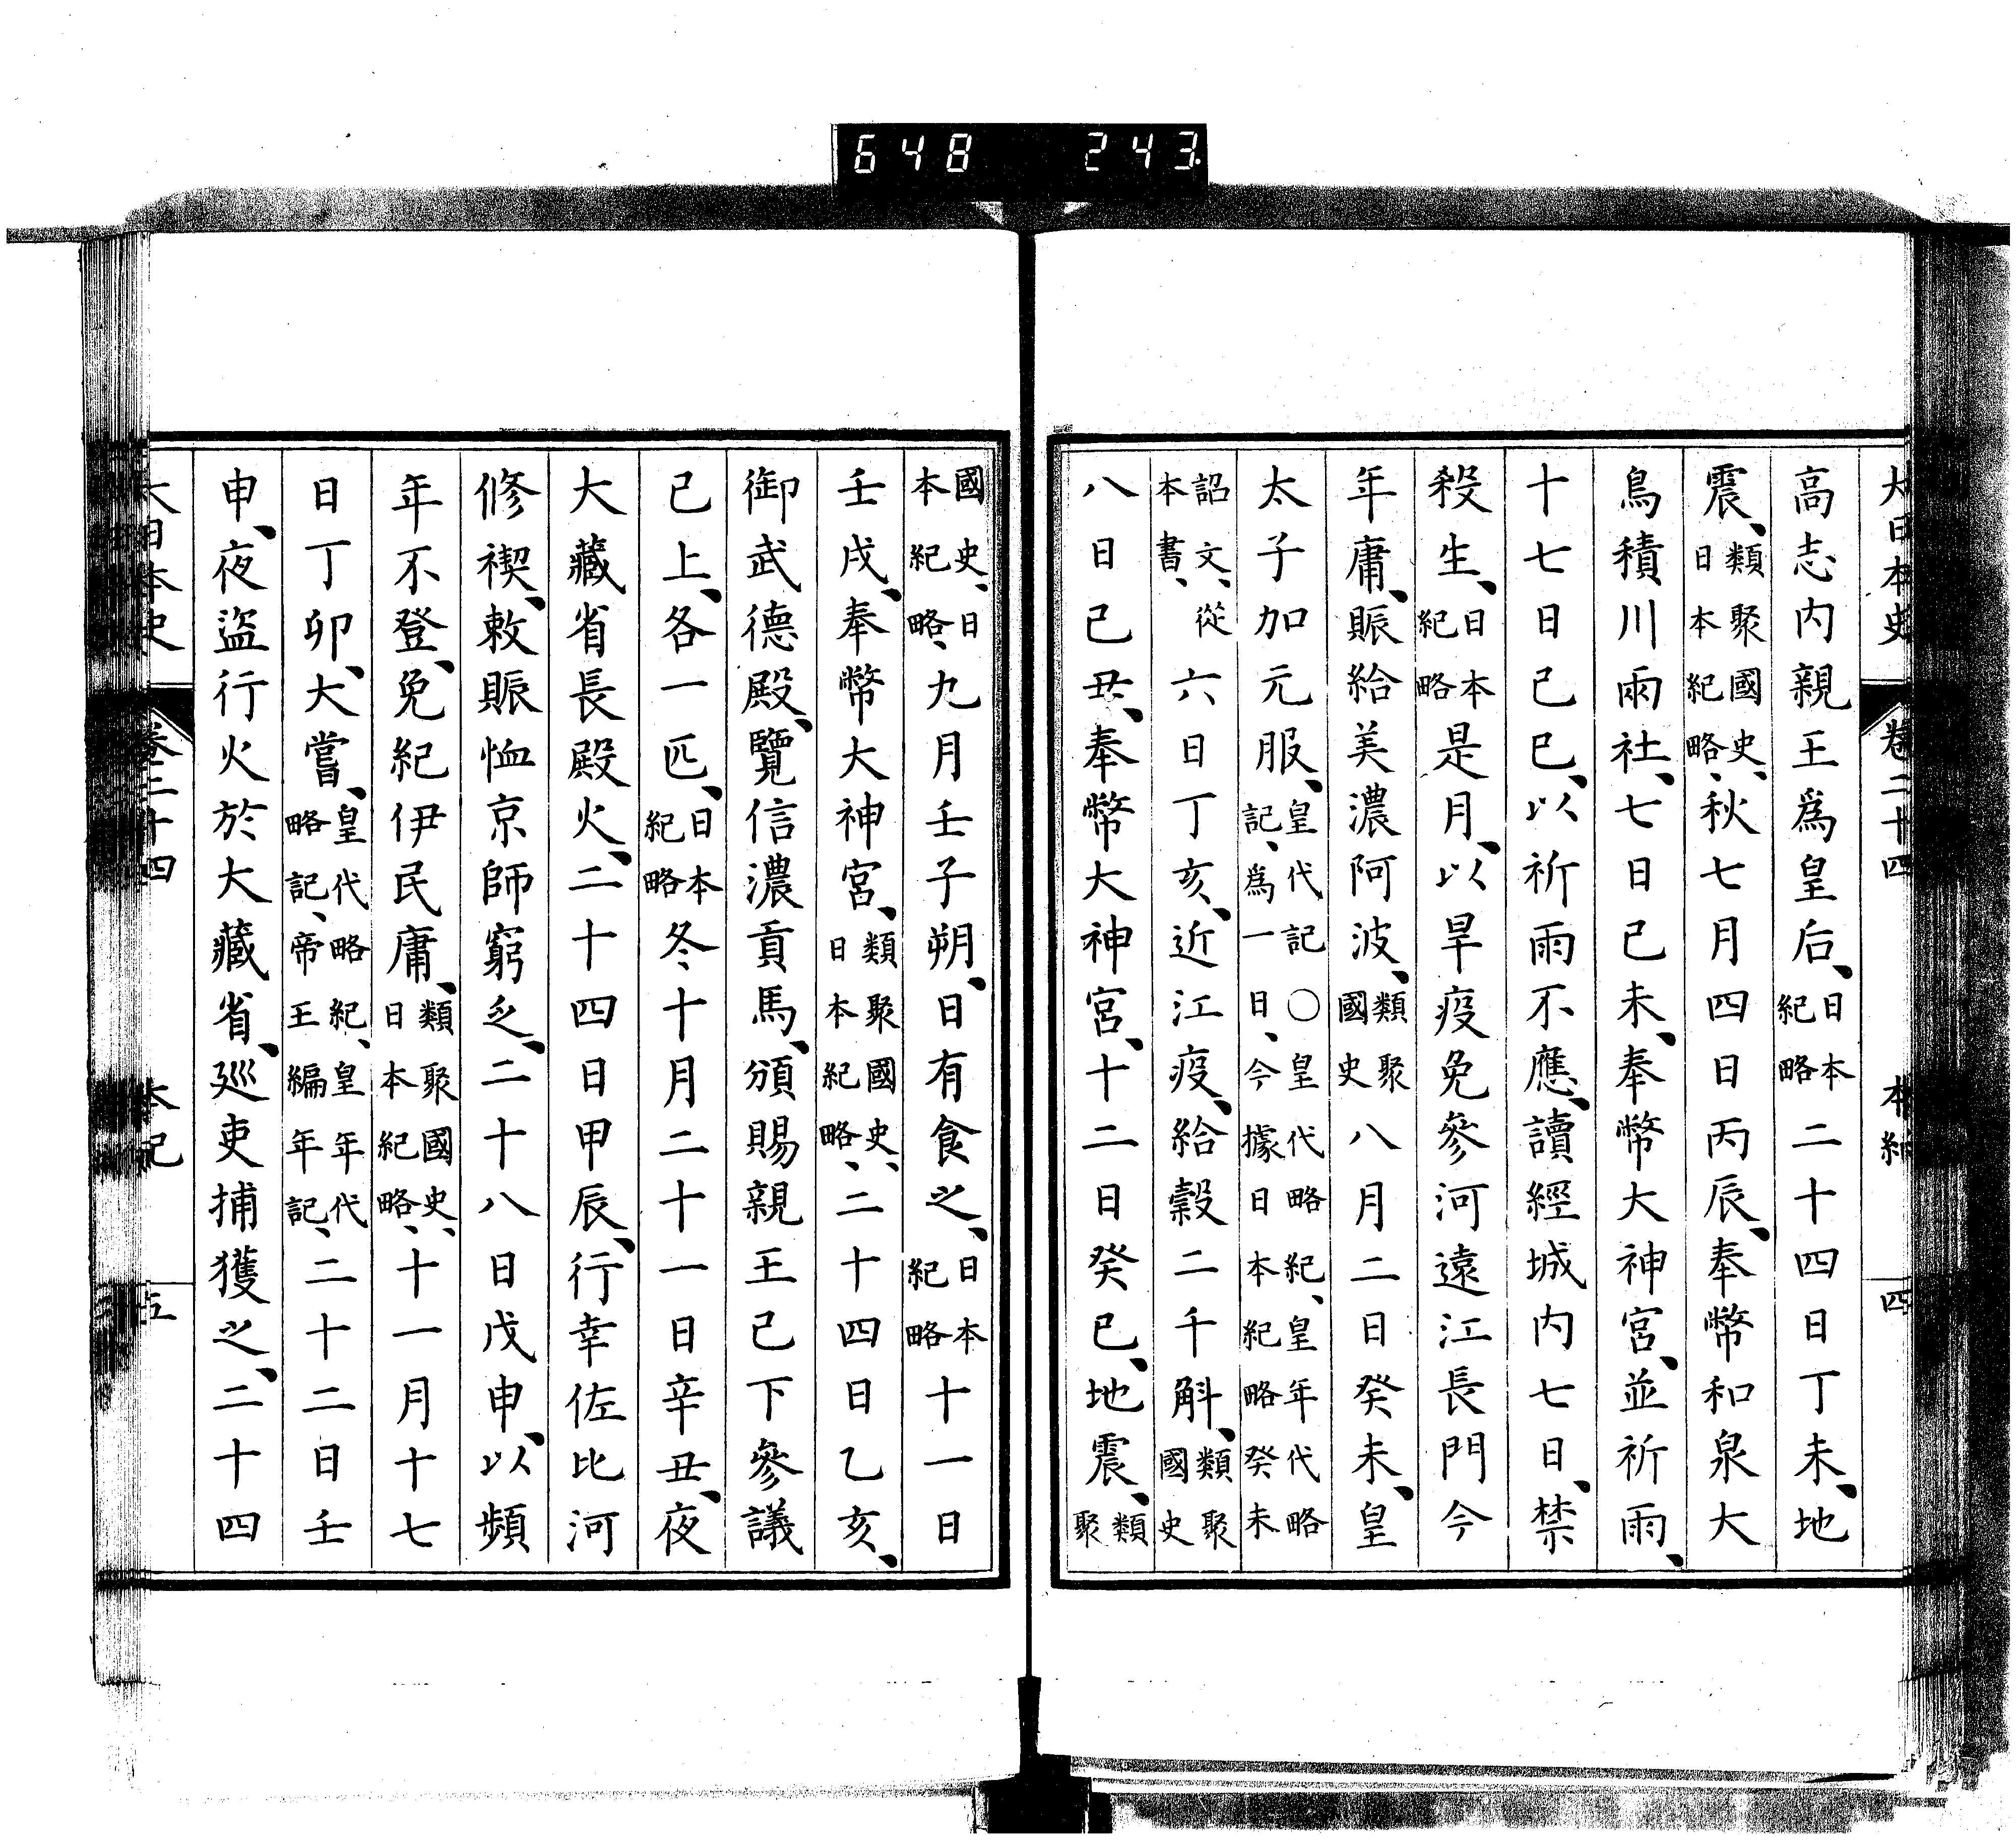 648 243
大日本史 卷二十四 本紀 四
高志内親王爲皇后、日本紀略二十四日丁未、地
震、類聚國史、日本紀略、秋七月四日丙辰、奉幣和泉大
鳥積川雨社、七日己未、奉幣大神宮、並祈雨、
十七日己巳、以祈雨不應、讀經城内七日、禁
殺生、日本紀略是月、以旱疫免參河遠江長門今
年庸、賑給美濃阿波、類聚國史八月二日癸未、皇
太子加元服、皇代記〇皇代略紀、皇年代略記、爲一日、今據日本紀略癸未
詔文、從本書、六日丁亥、近江疫、給穀二千斛、類聚國史
八日己丑、奉幣大神宮、十二日癸巳、地震、類聚
國史、日本紀略、九月壬子朔、日有食之、日本紀略十一日
壬戌、奉幣大神宮、類聚國史、日本紀略、二十四日乙亥、
御武德殿、覽信濃貢馬、頒賜親王已下參議
已上、各一匹、日本紀略冬十月二十一日辛丑、夜
大藏省長殿火、二十四日甲辰、行幸佐比河
修禊、敕賑恤京師窮乏、二十八日戊申、以頻
年不登、免紀伊民庸、類聚國史、日本紀略、十一月十七
日丁卯、大嘗、皇代略紀、皇年代略記、帝王編年記、二十二日壬
申、夜盜行火於大藏省、廵吏捕獲之、二十四
大日本史 卷二十四 本紀 五